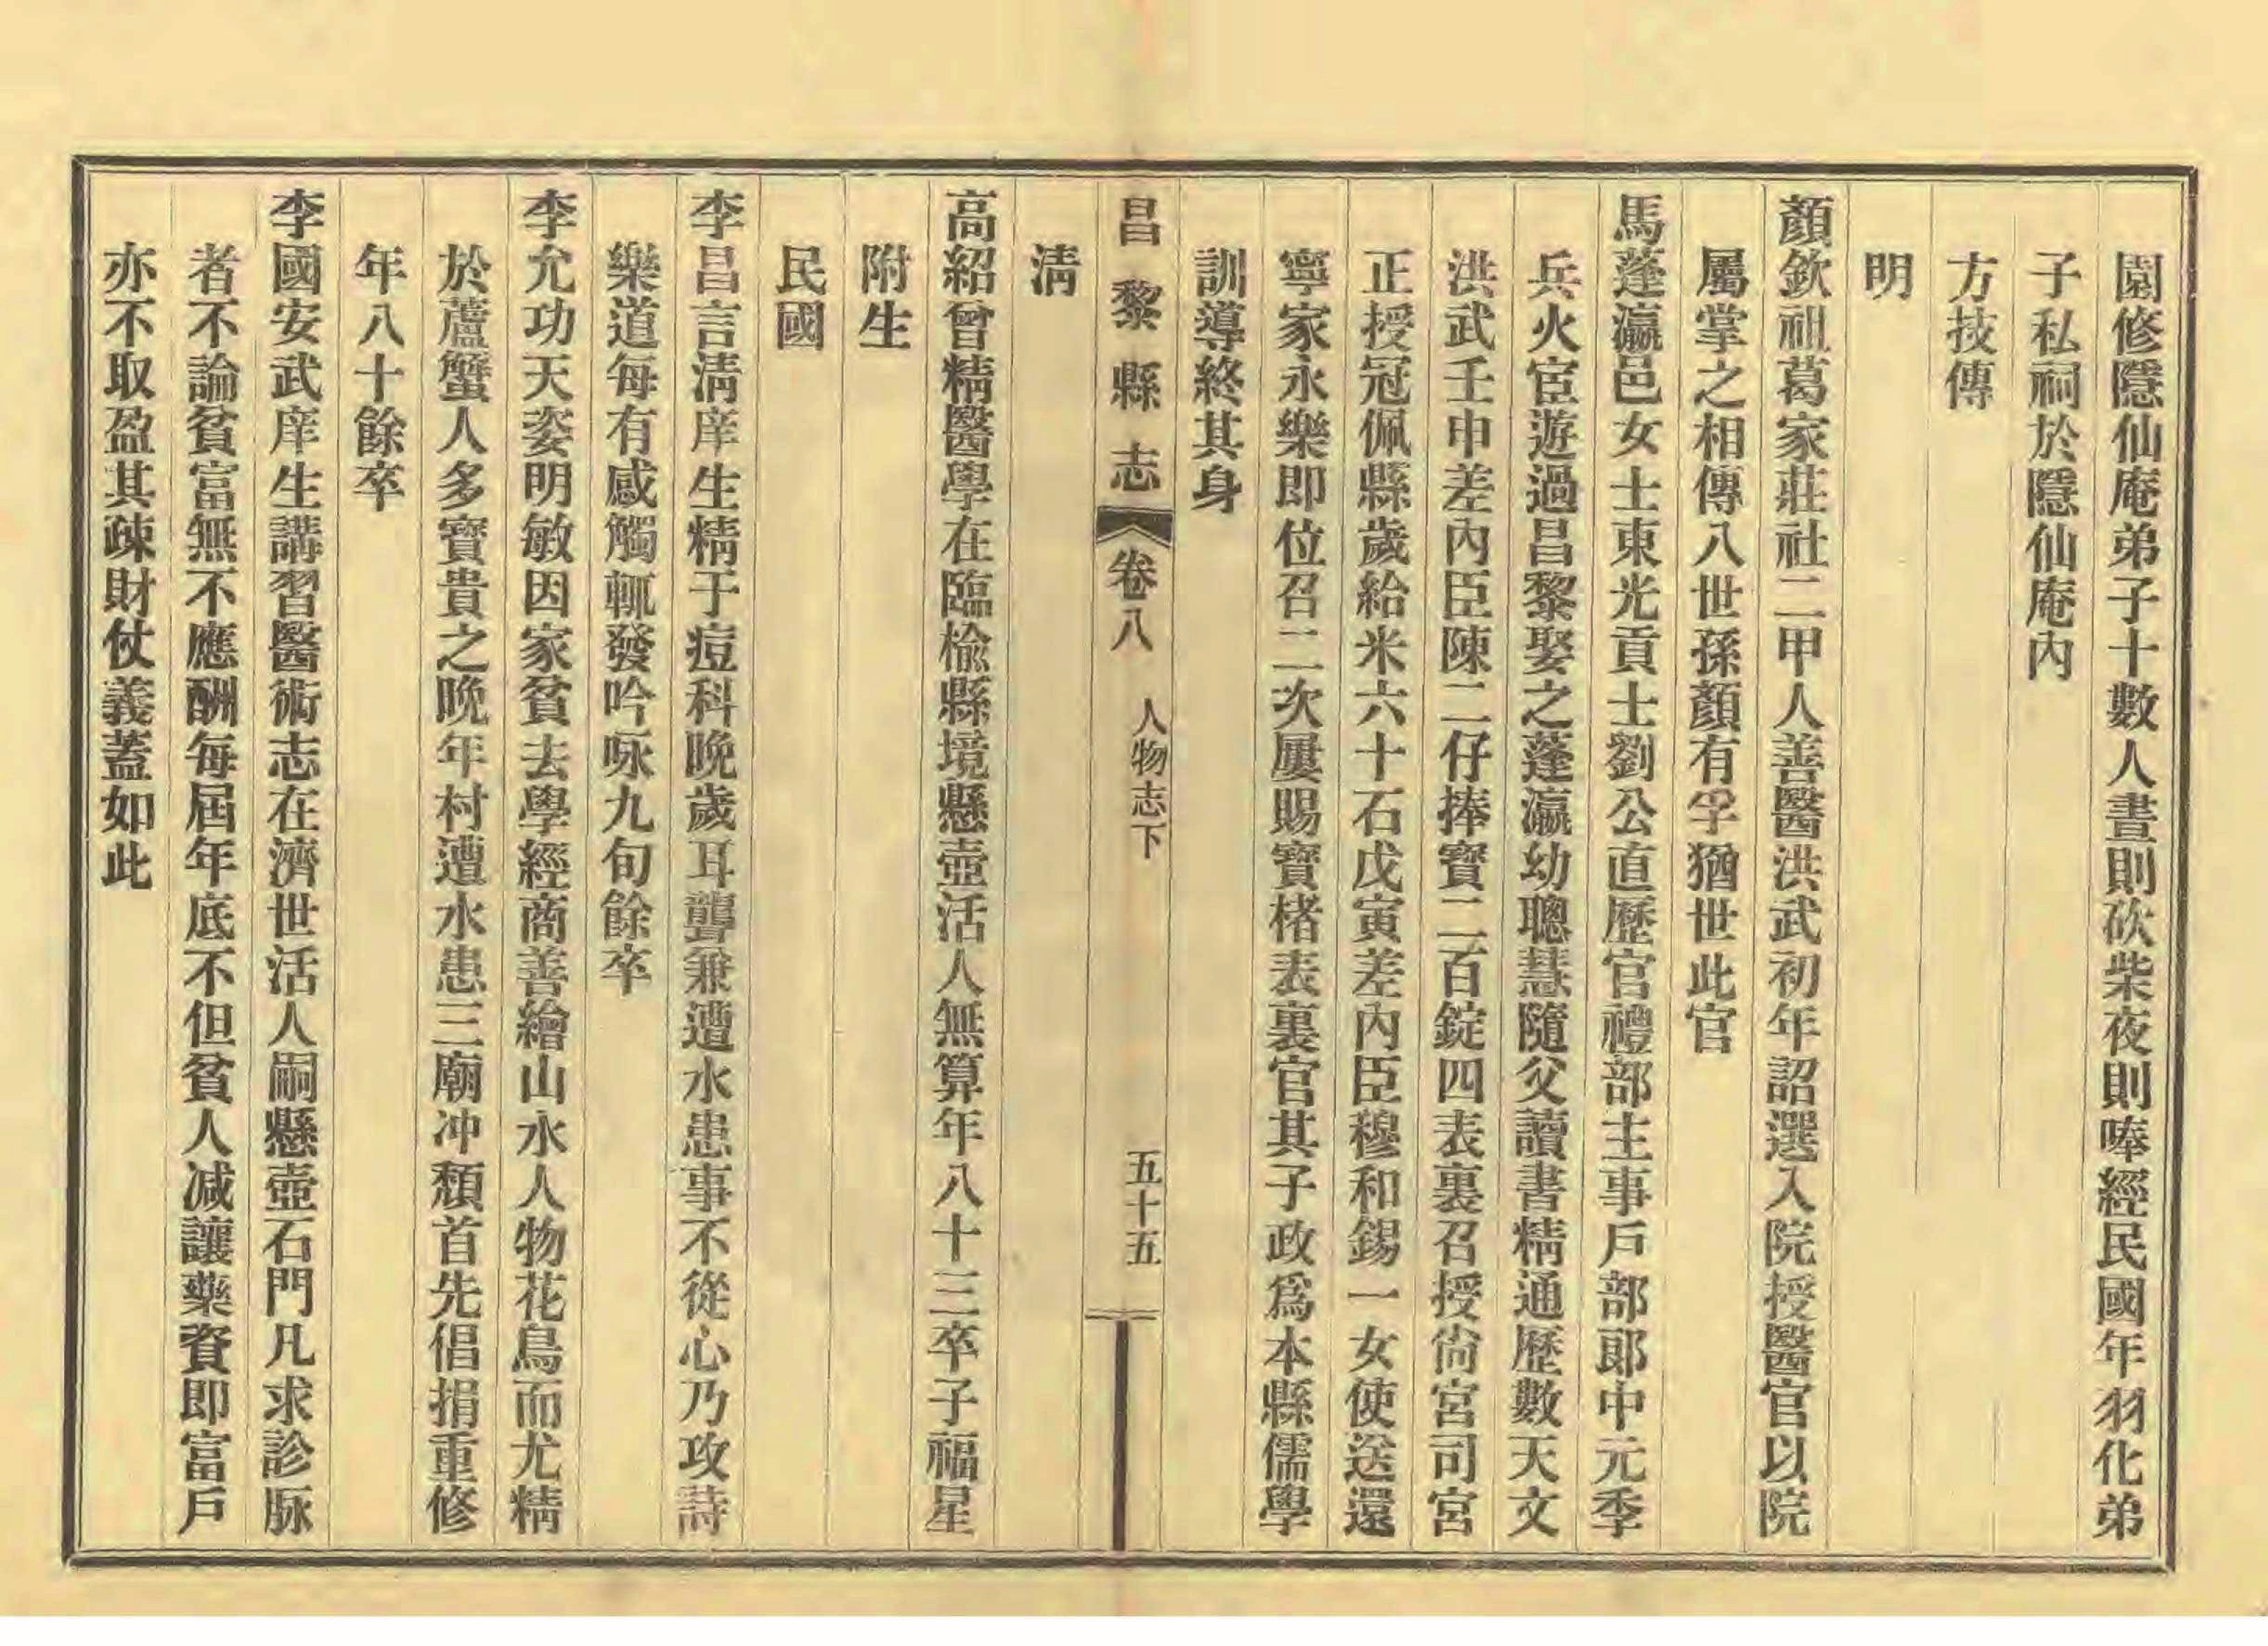 園修隱仙庵弟子十數人晝則砍柴夜則唪經民國年羽化弟
子私祠於隱仙庵內
方技傳
明
顏欽祖葛家莊社二甲人善醫洪武初年詔選入院授醫官以院
屬掌之相傳八世孫顏有孚猶世此官
馬蓬瀛邑女士東光貢士劉公直歷官禮部主事戶部郎中元季
兵火宦遊過昌黎娶之蓬瀛幼聰慧隨父讀書精通歷數天文
洪武壬申差內臣陳二仔捧寶二百錠四表裏召授尙宮司宮
正授冠佩縣歲給米六十石戊寅差內臣穆和錫一女使送還
寧家永樂即位召二次屢賜寶楮表裏官其子政爲本縣儒學
訓導終其身
昌黎縣志 卷八 人物志下 五十五
清
高紹曾精醫學在臨楡縣境懸壺活人無算年八十三卒子福星
附生
民國
李昌言清庠生精于痘科晚歲耳聾兼遭水患事不從心乃攻詩
樂道每有感觸輒發吟咏九旬餘卒
李允功天姿明敏因家貧去學經商善繪山水人物花鳥而尤精
於蘆蟹人多寳貴之晚年村遭水患三廟冲頹首先倡捐重修
年八十餘卒
李國安武庠生講習醫術志在濟世活人嗣懸壺石門凡求診脈
者不論貧富無不應酬每屆年底不但貧人减讓藥資即富戶
亦不取盈其疎財仗義蓋如此